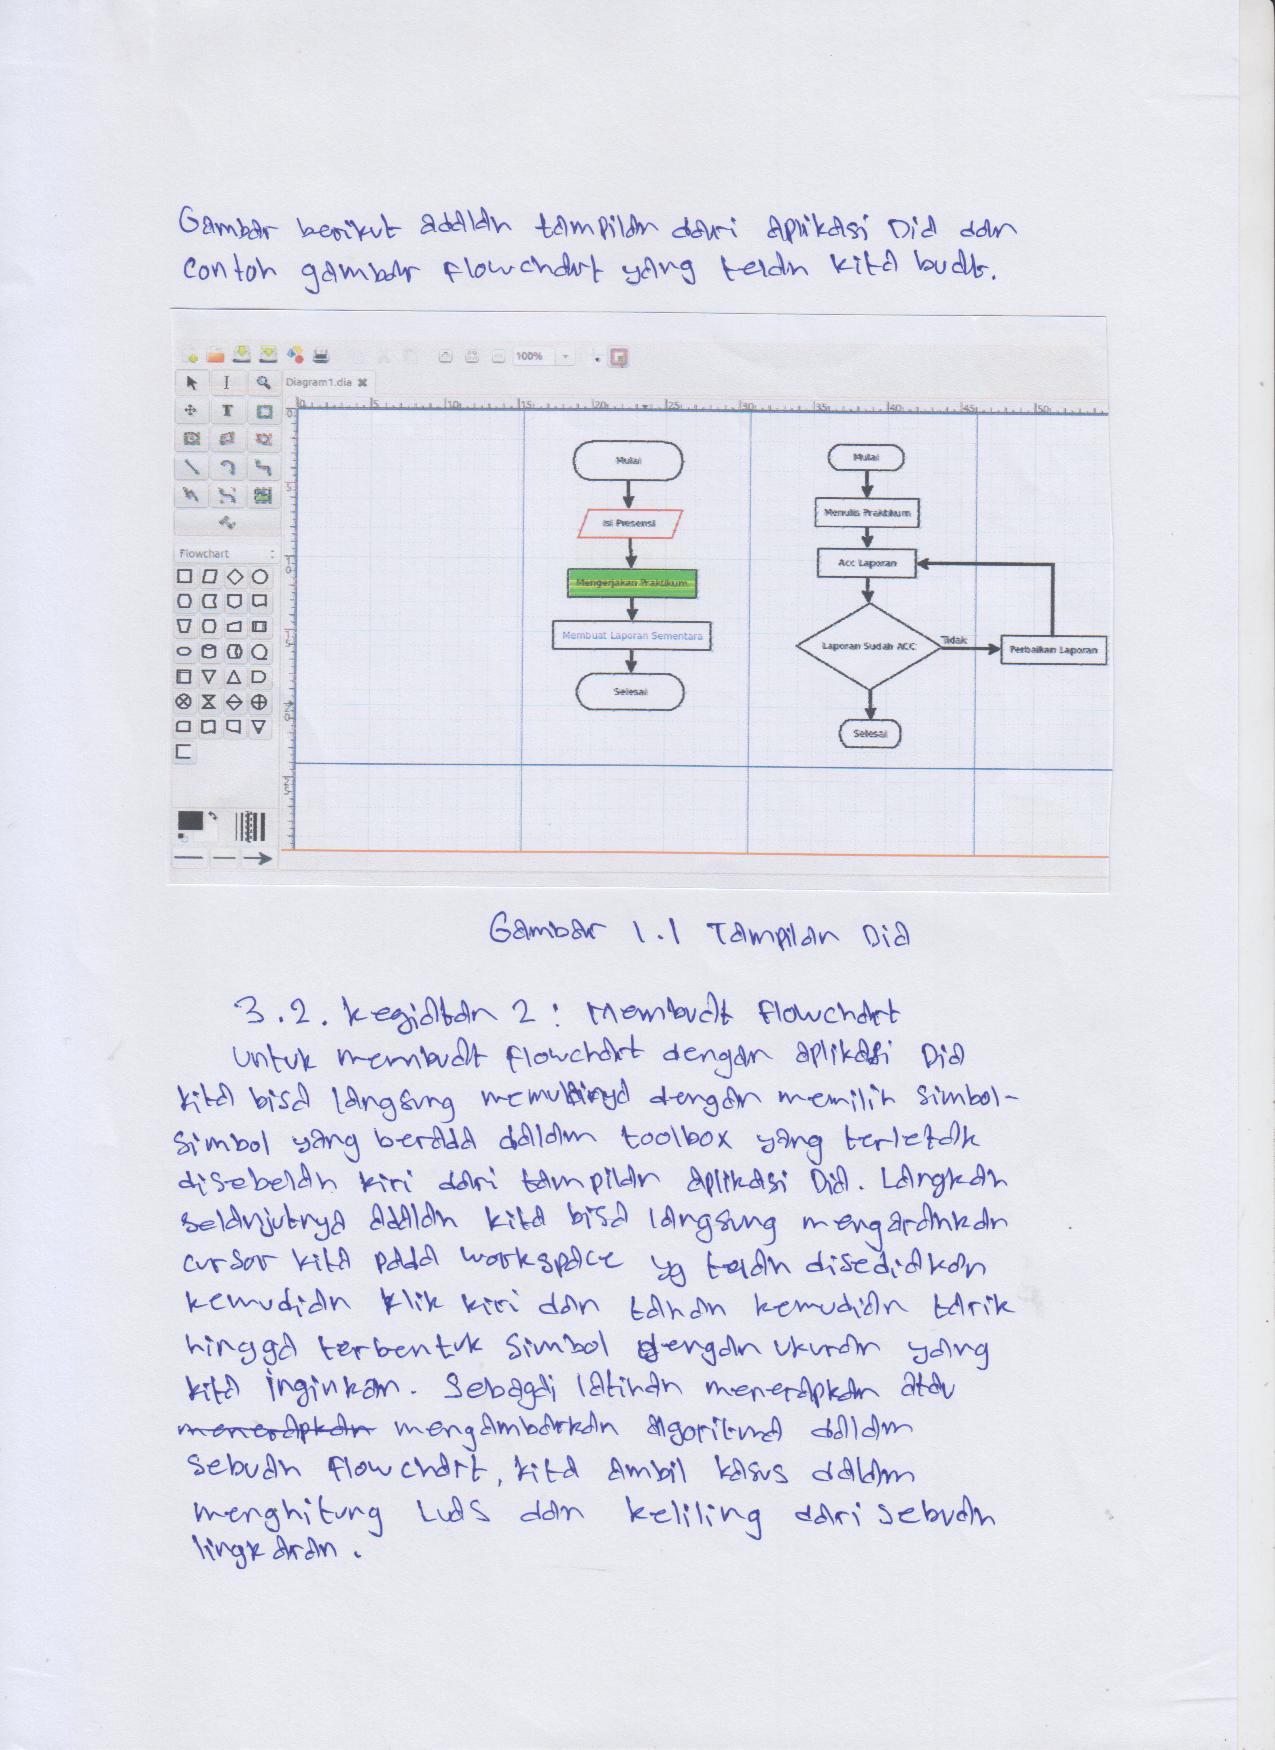 Gambar berikut adalah tampilan dari aplikasi Dia dan
contoh gambar flowchart yang telah kita buat.
100%
Diagram1.dia
Flowchart
Mulai
Isi Presensi
Mengerjakan Praktikum
Membuat Laporan Sementara
Selesai
Mulai
Menulis Praktikum
Acc Laporan
Laporan Sudah ACC
Tidak
Perbaikan Laporan
Selesai
Gambar 1.1 Tampilan Dia
3.2. Kegiatan 2 : Membuat Flowchart
Untuk membuat flowchart dengan aplikasi Dia
kita bisa langsung memulainya dengan memilih simbol-
simbol yang berada dalam toolbox yang terletak
disebelah kiri dari tampilan aplikasi Dia. Langkah
selanjutnya adalah kita bisa langsung mengarahkan
cursor kita pada workspace yg telah disediakan
kemudian klik kiri dan tahan kemudian tarik
hingga terbentuk simbol dengan ukuran yang
kita inginkan. Sebagai latihan menerapkan atau
menerapkan mengambarkan algoritma dalam
sebuah flowchart, kita ambil kasus dalam
menghitung Luas dan keliling dari sebuah
lingkaran.